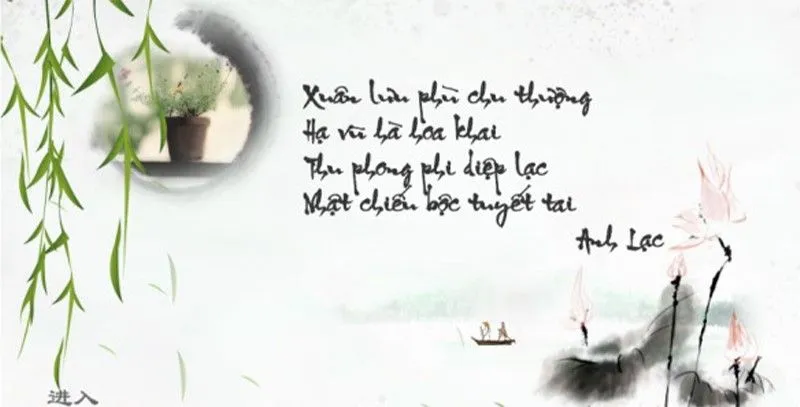 Xuân lưu phù chu thượng
Hạ vũ hà hoa khai
Thu phong phi diệp lạc
Nhật chiếu bộc tuyết tai
Anh Lạc
进入